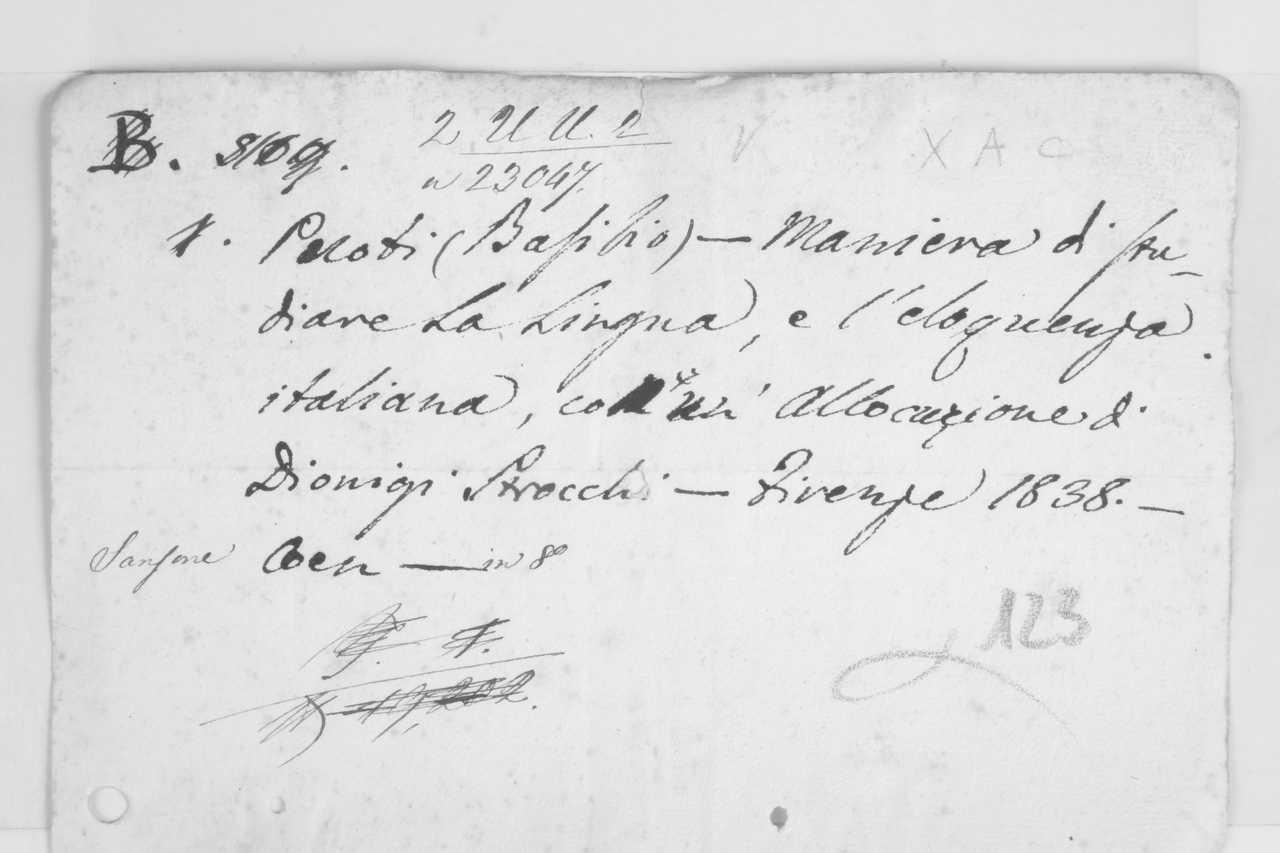 B. 2 U U. 2
n 23047.
X A C
1. Puoti (Basilio) — Maniera di stu-
diare la lingua, e l'eloquenza
italiana, con un' Allocuzione di
Dionigi Strocchi — Firenze 1838. —
Sansone Coen — in 8°
123